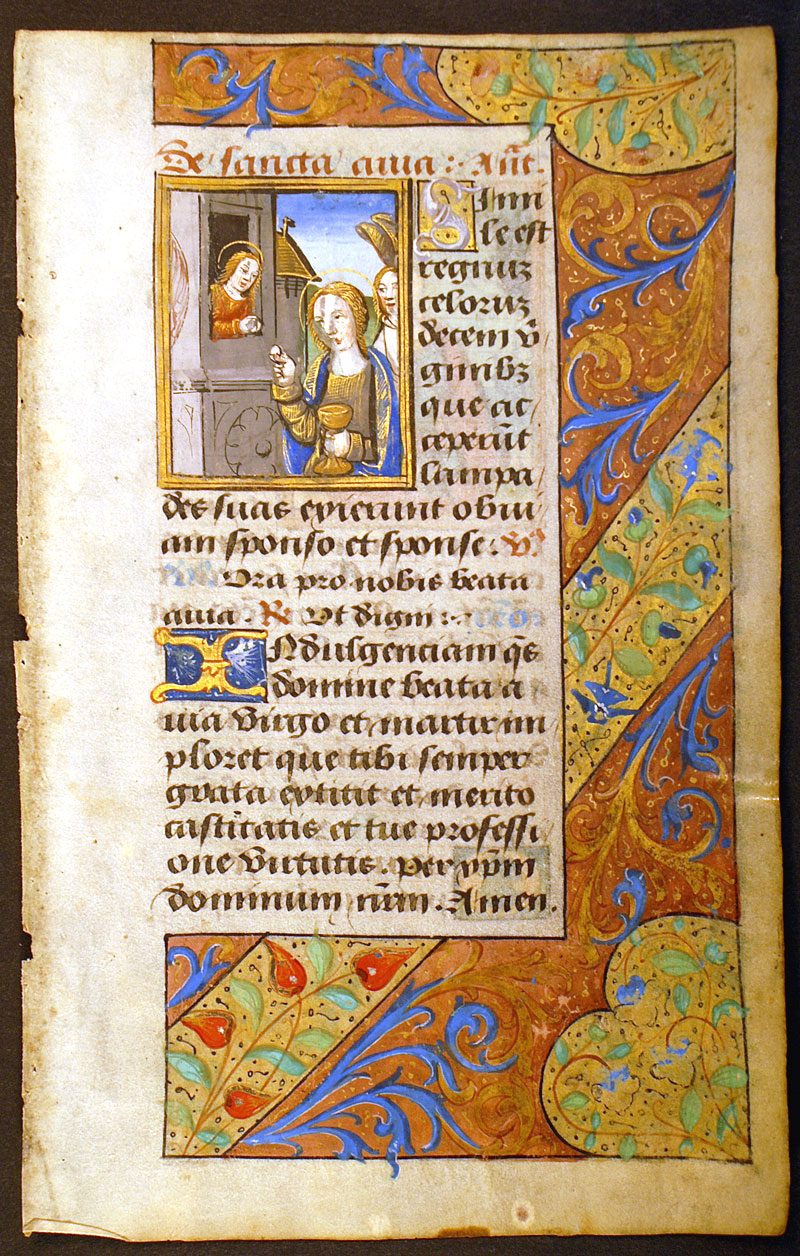 De sancta auia : An̄t.
Simi
le est
regnuz
celoruz
decem v̄
ginibz
que ac,
ceperūt
lampa,
des suas exierunt obui,
am sponso et sponse. V̓s
Ora pro nobis beata
auia. Re Vt digni :
INdulgenciam q̄s
domine beata a
uia virgo et martir im,
ploret que tibi semper
grata extitit et merito
castitatis et tue professi
one virtutis. per xp̄m
dominum nr̄m. Amen.